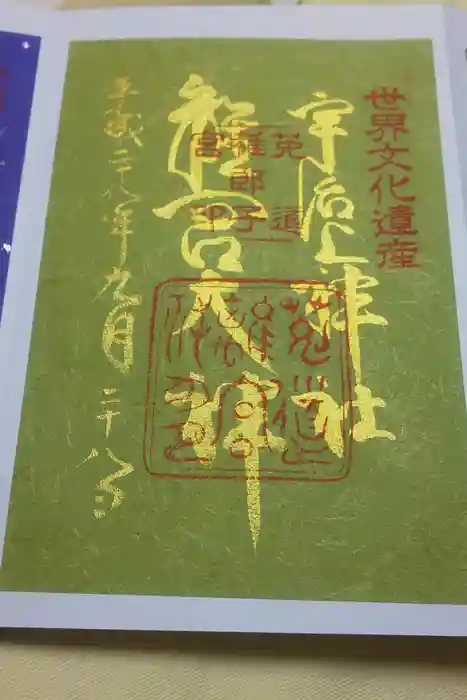 世界文化遺産
宇治上神社
離宮大神
菟道
稚郎子
宮印
平成二十八年九月二十八日